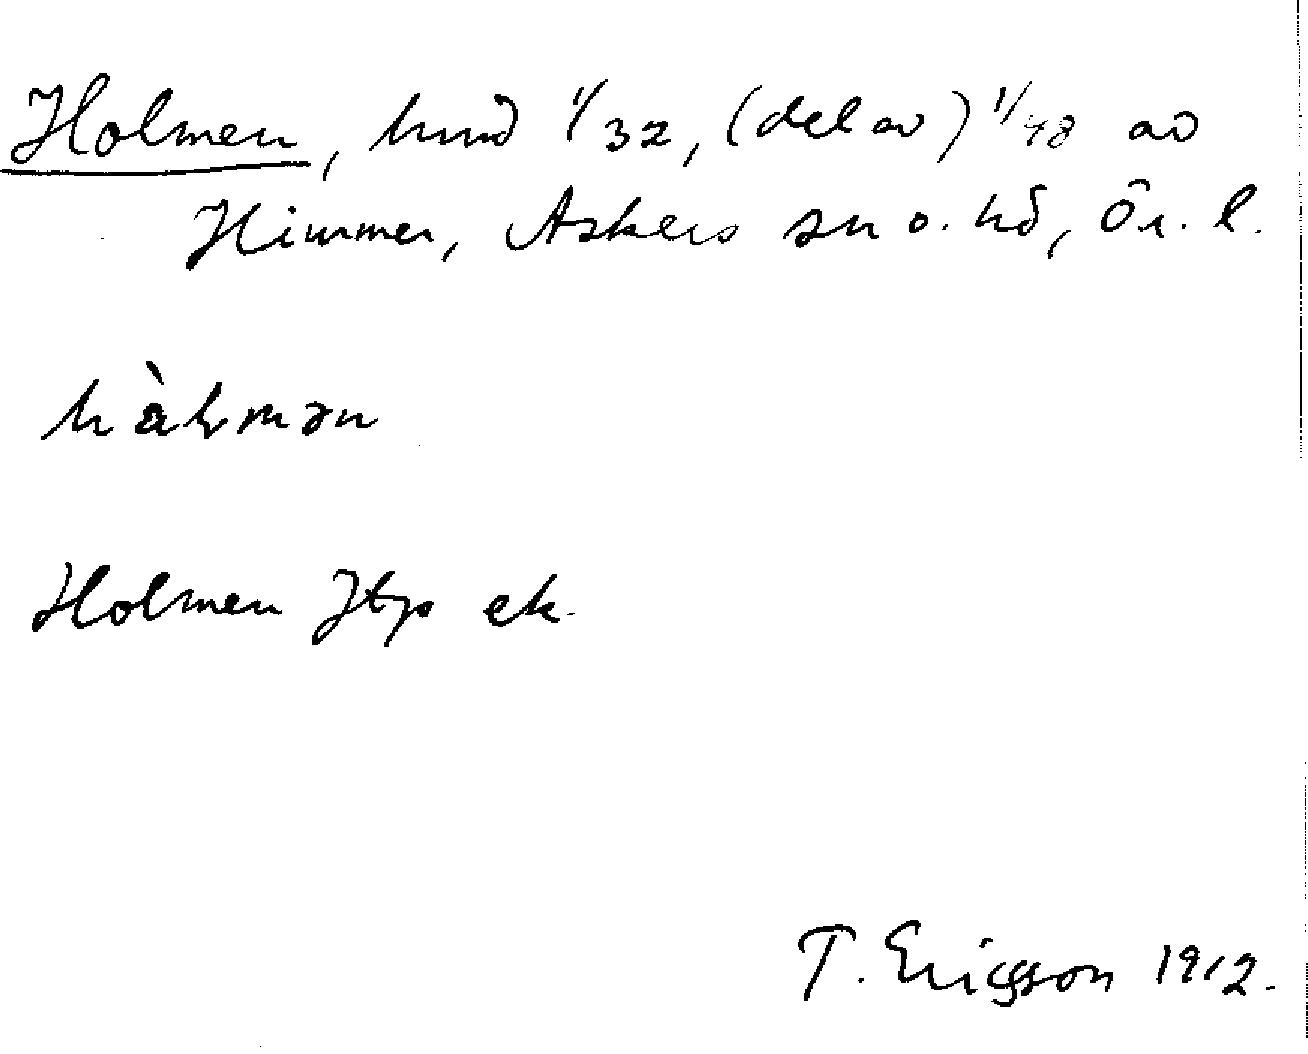 Holmen, hmd 1/32, (del av) 1/48 av
Himmer, Askers sn o. hd, Ör. l.
Holmen Jtp ek.
T. Ericsson 1912.